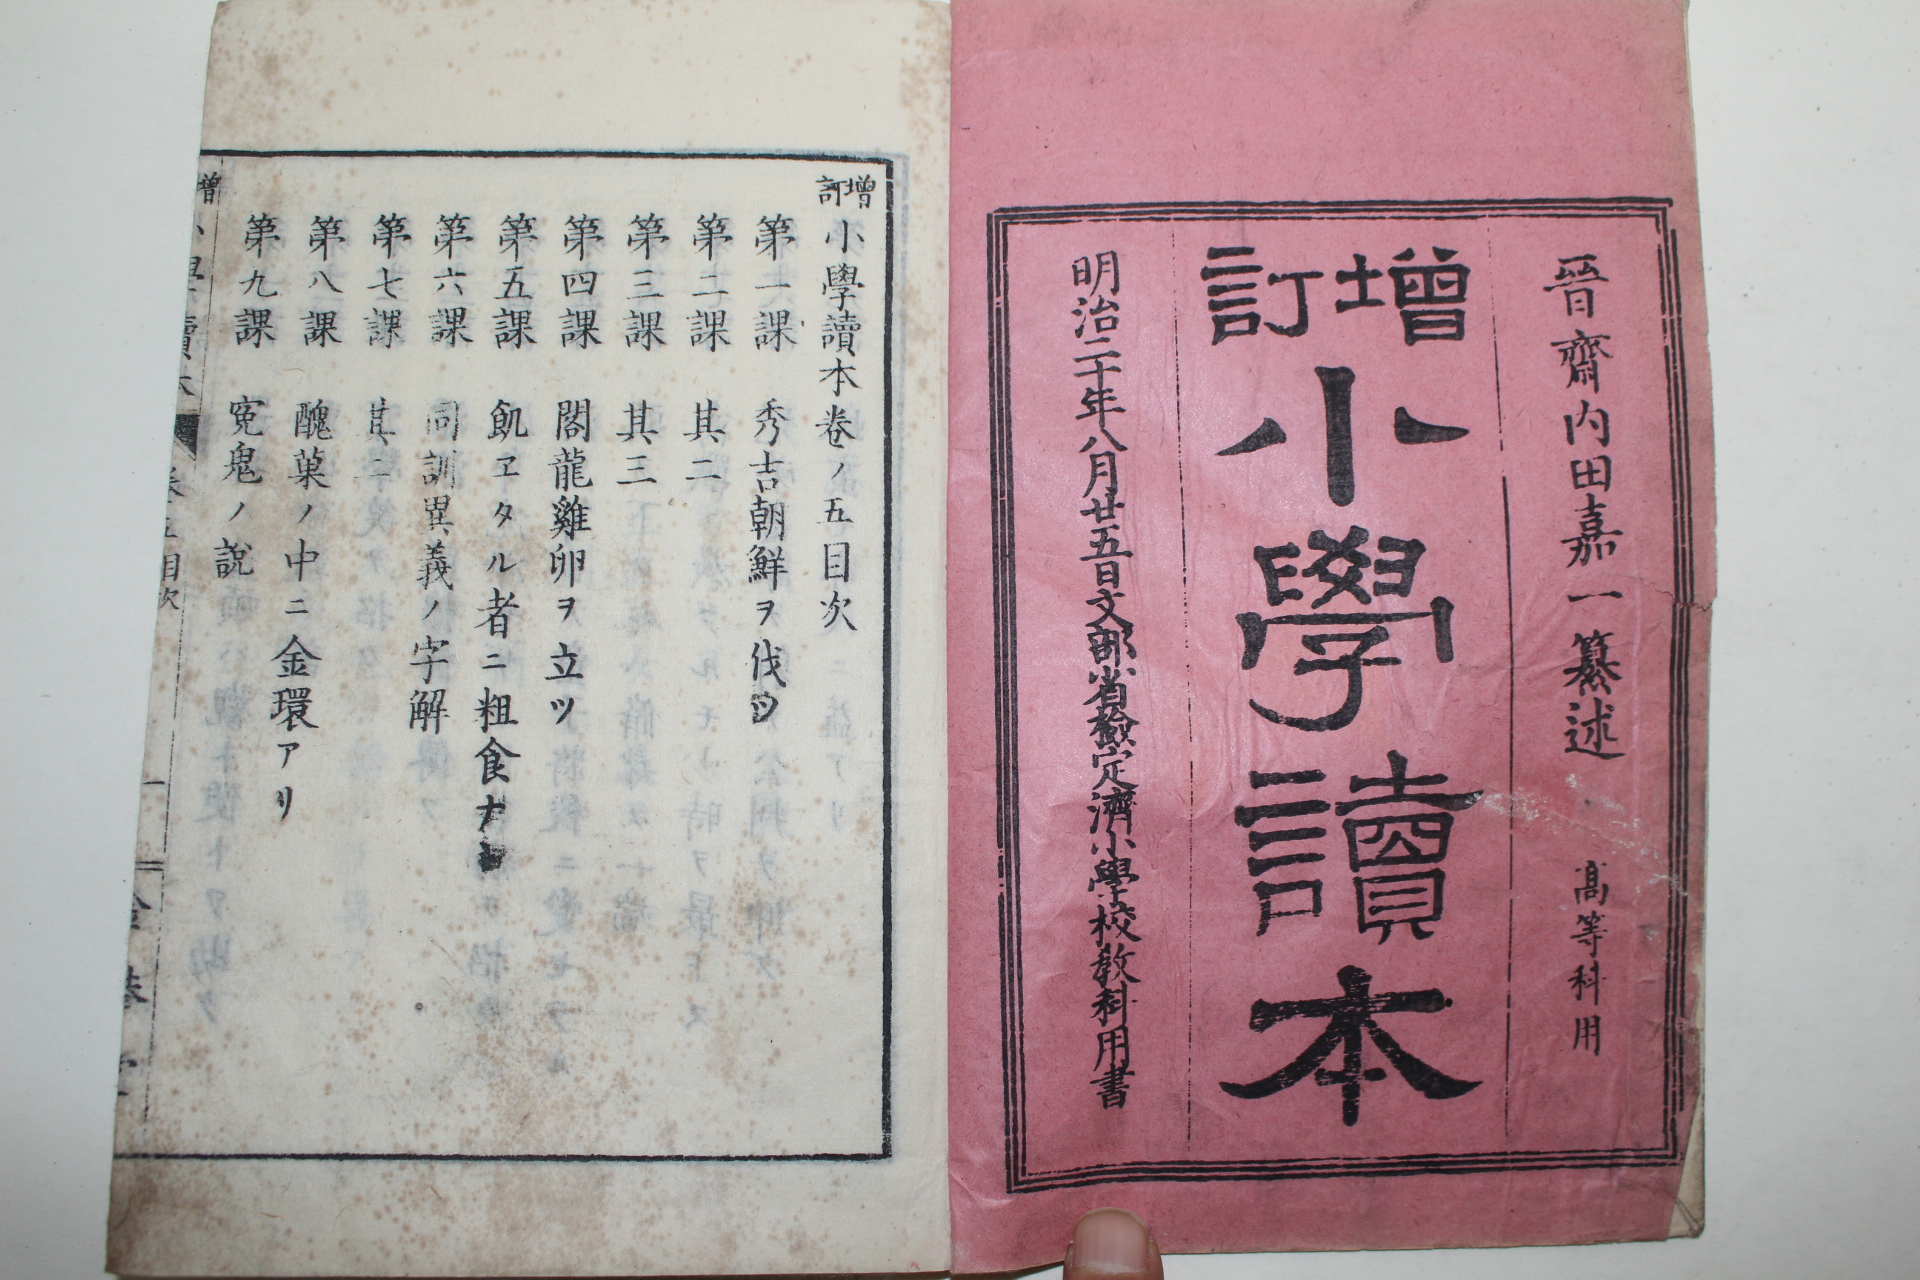 晉齋内田嘉一纂述 高等科用
增訂
小學讀本
明治二十年八月廿五日文部省檢定濟小學校教科用書
增訂小學讀本卷ノ五目次
第一課 秀吉朝鮮ヲ伐ツ
第二課 其二
第三課 其三
第四課 閣龍雞卵ヲ立ツ
第五課 飢ヱタル者ニ粗食ナシ
第六課 同訓異義ノ字解
第七課 其二
第八課 醜菓ノ中ニ金環アリ
第九課 寃鬼ノ說
增 小學讀本 卷ノ五目次 一